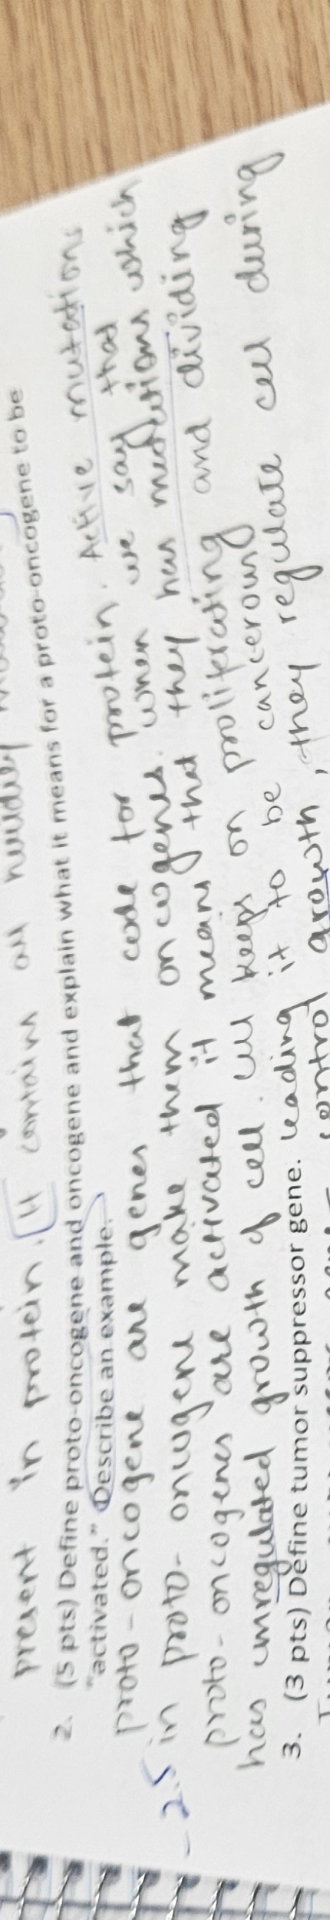 present in protein. It contains all
2. (5 pts) Define proto-oncogene and oncogene and explain what it means for a proto-oncogene to be
"activated." Describe an example.
proto-oncogene are genes that code for protein. Active mutations
-2.5 in proto-oncogene make them oncogenes. when we say that
proto-oncogenes are activated it means that they has mutations which
has unregulated growth of cell. cell keeps on proliferating and dividing
3. (3 pts) Define tumor suppressor gene. leading it to be cancerous
control growth, they regulate cell during